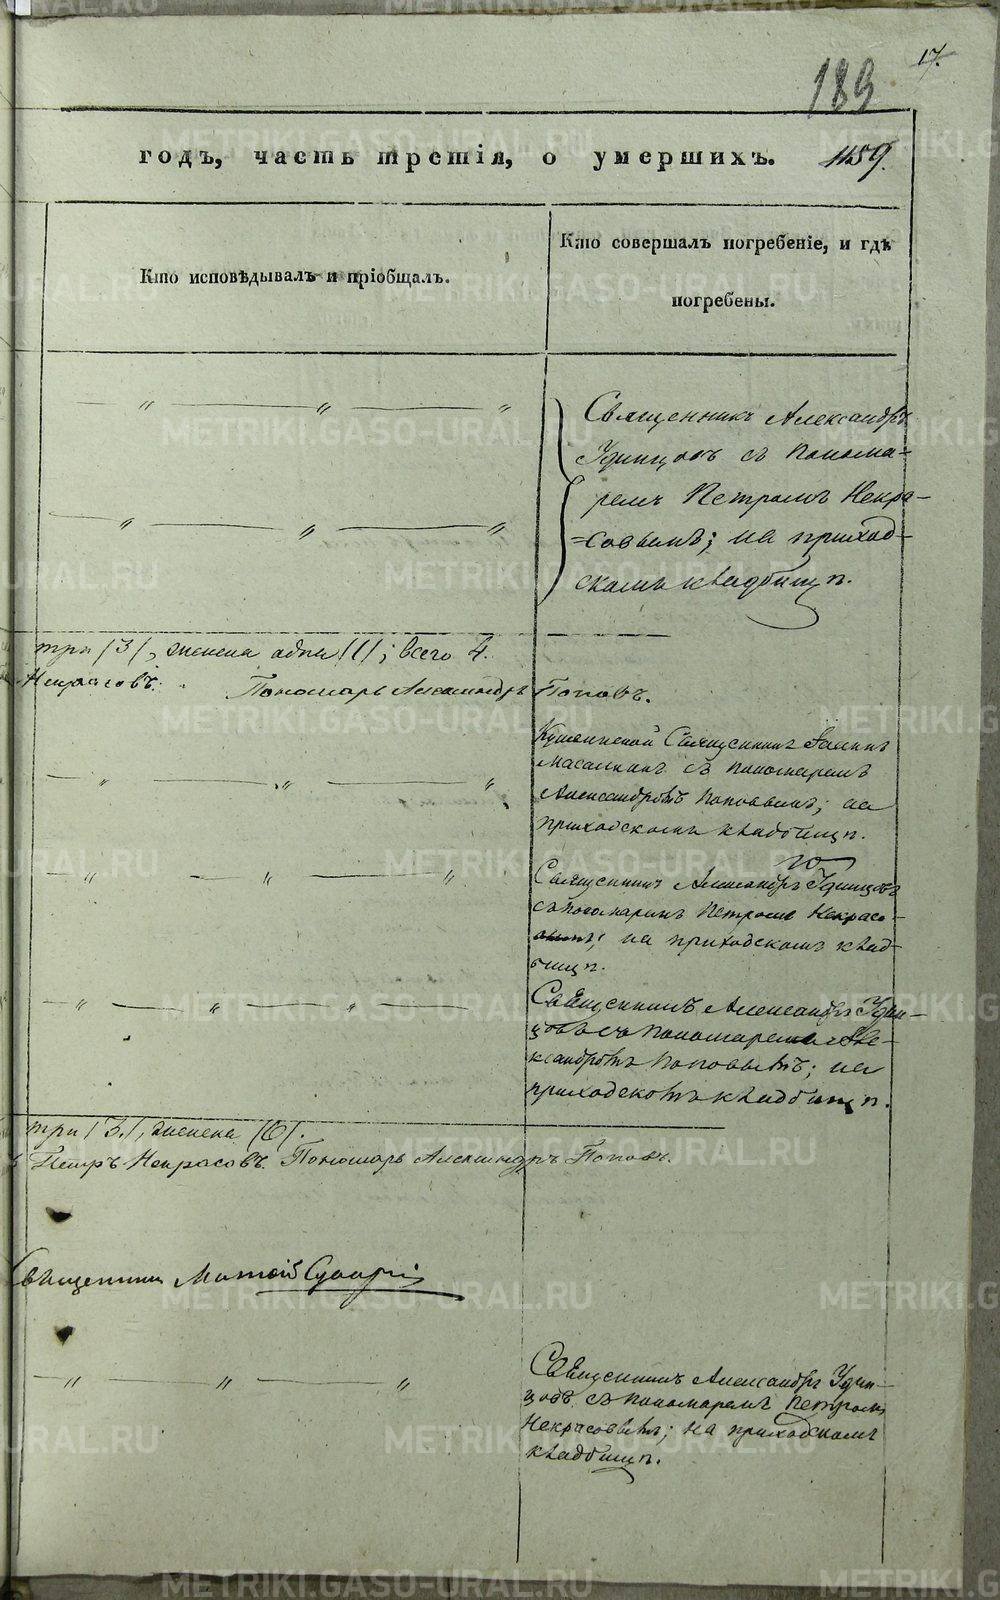 17.
189
годъ, часть третія, о умершихъ. 1159.
Кто исповѣдывалъ и пріобщалъ.
Кто совершалъ погребеніе, и гдѣ
погребены.
Священникъ Александръ
Удинцовъ съ Понома-
ремъ Петромъ Некра-
=совымъ; на приход-
скомъ кладбищѣ.
три /3/, женска одна /1/; всего 4.
Некрасовъ. Пономарь Александръ Поповъ.
Священникъ Іоаннъ
съ пономаремъ
Александромъ Поповымъ; на
приходскомъ кладбищѣ.
Священникъ Александръ Удинцовъ
съ пономаремъ Петромъ Некрасо-
вымъ; на приходскомъ клад-
бищѣ.
Священникъ Александръ Удин-
цовъ съ пономаремъ Але-
ксандромъ Поповымъ; на
приходскомъ кладбищѣ.
три /3/, женска /0/.
Петръ Некрасовъ. Пономарь Александръ Поповъ.
Священникъ
Священникъ Александръ Удин-
цовъ съ пономаремъ Петромъ
Некрасовымъ; на приходскомъ
кладбищѣ.
METRIKI.GASO-URAL.RU